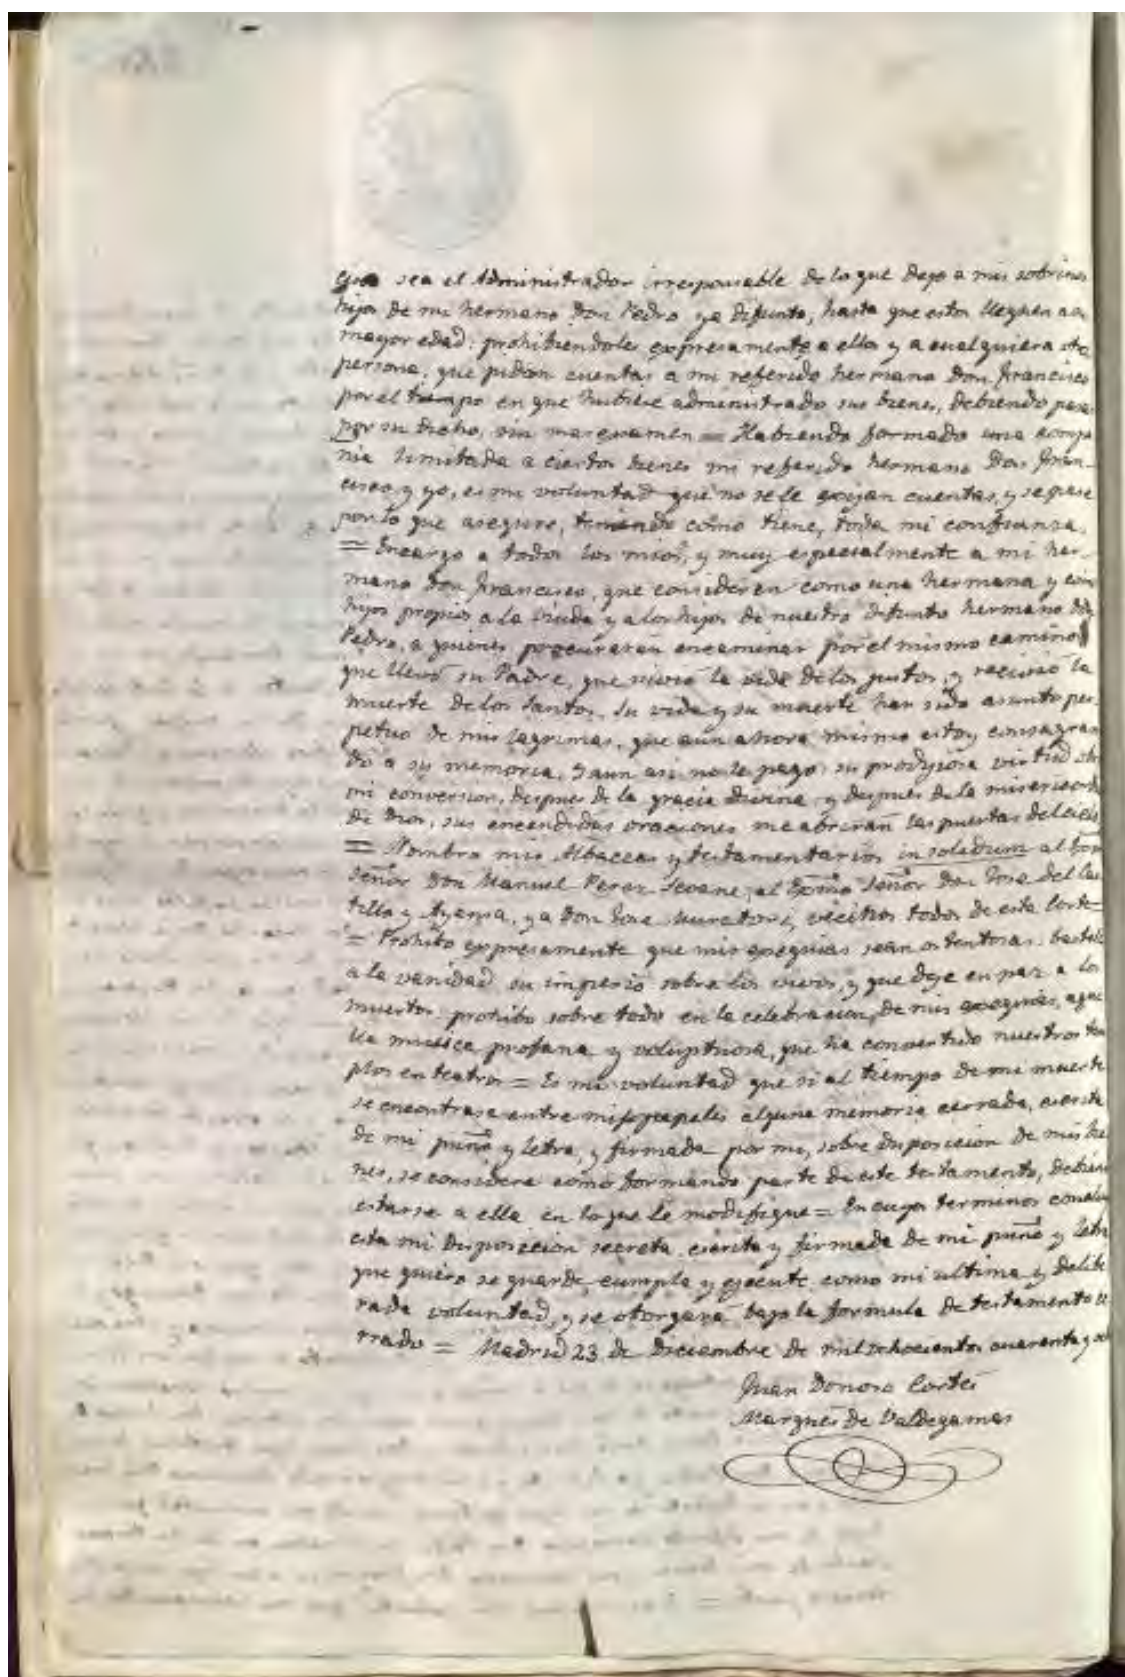 sea el Administrador irresponsable de lo que dejo a mis sobrinos
hijos de mi hermano Don Pedro ya difunto, hasta que estos lleguen a la
mayor edad: prohibiendoles expresamente a ellos y a cualquiera otra
persona, que pidan cuentas a mi referido hermano Don Francisco
por el tiempo en que hubiese administrado sus bienes, debiendo pasar
por su dicho, sin mas examen = Habiendo formado una compa
ñia limitada a ciertos bienes mi referido hermano Don Fran-
cisco y yo, es mi voluntad que no se le exijan cuentas, y se pase
por lo que asegure, teniendo como tiene, toda mi confianza.
= Encargo a todos los mios, y muy especialmente a mi her-
mano Don Francisco, que consideren como una hermana y com
hijos propios a la viuda y a los hijos de nuestro difunto hermano Don
Pedro, a quienes procuraran encaminar por el mismo camino
que llevó su Padre, que vivió la vida de los justos, y recibió la
muerte de los Santos. Su vida y su muerte han sido asunto per-
petuo de mis lagrimas, que aun ahora mismo estoy consagran
do a su memoria, y aun asi no le pago: su prodigiosa virtud obró
mi conversion, despues de la gracia divina, y despues de la misericordia
de Dios, sus encendidas oraciones me abriran las puertas del cielo
= Nombro mis Albaceas y testamentarios in solidum al Exmo
Señor Don Manuel Perez Seoane, al Exmo Señor Don Jose del Cas
tillo y Ayensa, y a Don Jose Muratori, vecinos todos de esta Corte
= Prohibo expresamente que mis exequias sean ostentosas: bastele
a la vanidad su imperio sobre los vivos, y que deje en paz a los
muertos: prohibo sobre todo en la celebracion, de mis exequias, aque
lla musica profana y voluptuosa, que ha convertido nuestros tem
plos en teatros = Es mi voluntad que si al tiempo de mi muerte
se encontrase entre mis papeles alguna memoria cerrada, escrita
de mi puño y letra, y firmada por mi, sobre disposicion de mis bie
nes, se considere como formando parte de este testamento, debien
estarse a ella en lo que le modifique = En cuyos terminos concluyo
esta mi disposicion secreta, escrita y firmada de mi puño y letra
que quiero se guarde, cumpla y ejecute como mi ultima y delibe
rada voluntad, y se otorgará bajo la formula de testamento ce
rrado = Madrid 23 de Diciembre de mil ochocientos cuarenta y och
Juan Donoso Cortés
Marqués de Valdegamas